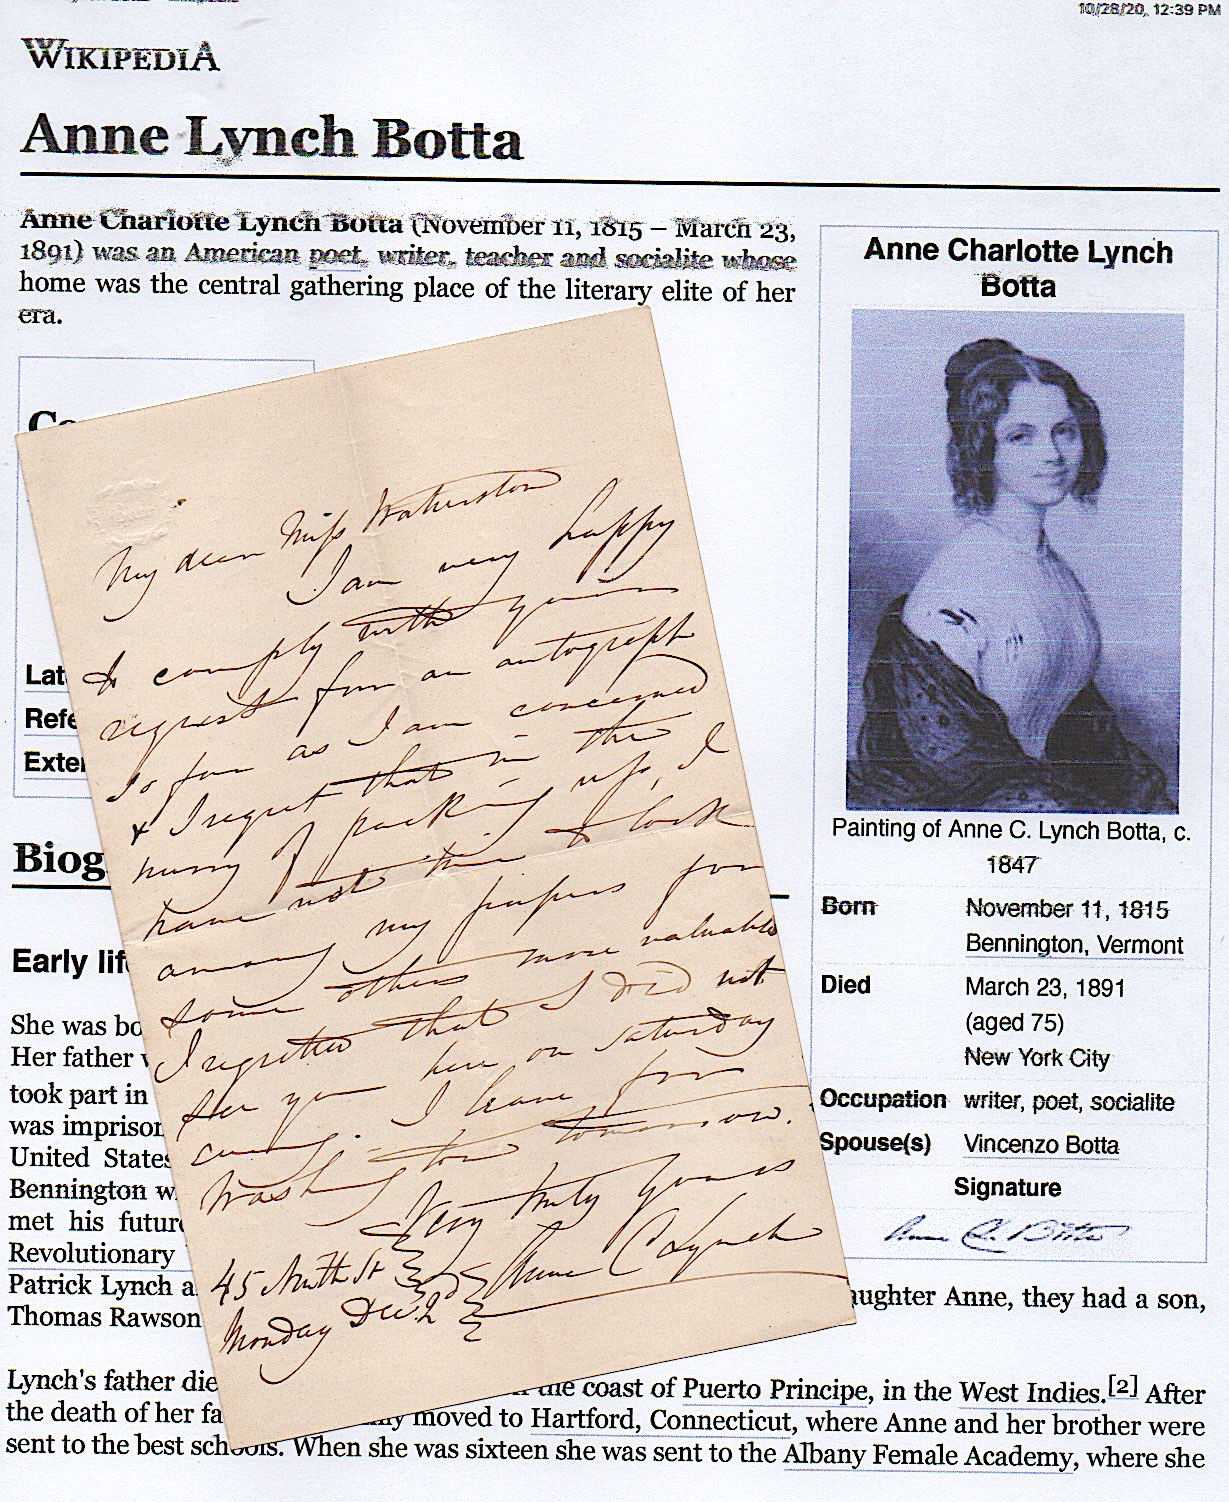 10/28/20, 12:39 PM
WIKIPEDIA
Anne Lynch Botta
Anne Charlotte Lynch Botta (November 11, 1815 – March 23,
1891) was an American poet, writer, teacher and socialite whose
home was the central gathering place of the literary elite of her
era.
Co
Lat
Refe
Exter
Biog
Early lif
She was bo
Her father
took part in
was imprison
United States
Bennington w
met his future
Revolutionary
Patrick Lynch a
Thomas Rawson
aughter Anne, they had a son,
Lynch's father die
the coast of Puerto Principe, in the West Indies.[2] After
the death of her fa
moved to Hartford, Connecticut, where Anne and her brother were
sent to the best schools. When she was sixteen she was sent to the Albany Female Academy, where she
Anne Charlotte Lynch
Botta
Painting of Anne C. Lynch Botta, c.
1847
Born November 11, 1815
Bennington, Vermont
Died March 23, 1891
(aged 75)
New York City
Occupation writer, poet, socialite
Spouse(s) Vincenzo Botta
Signature
Anne C. L. Botta
My dear Miss Waterston
I am very happy
to comply with your
request for an autograph
so far as I am concerned
& I regret that in the
hurry of packing up, I
have not time to look
among my papers for
some others more valuable
I regretted that I did not
see you here on Saturday
evening. I leave for
Washington tomorrow.
Very truly yours
Anne C Lynch
45 Ninth St
Monday Dec. 2d